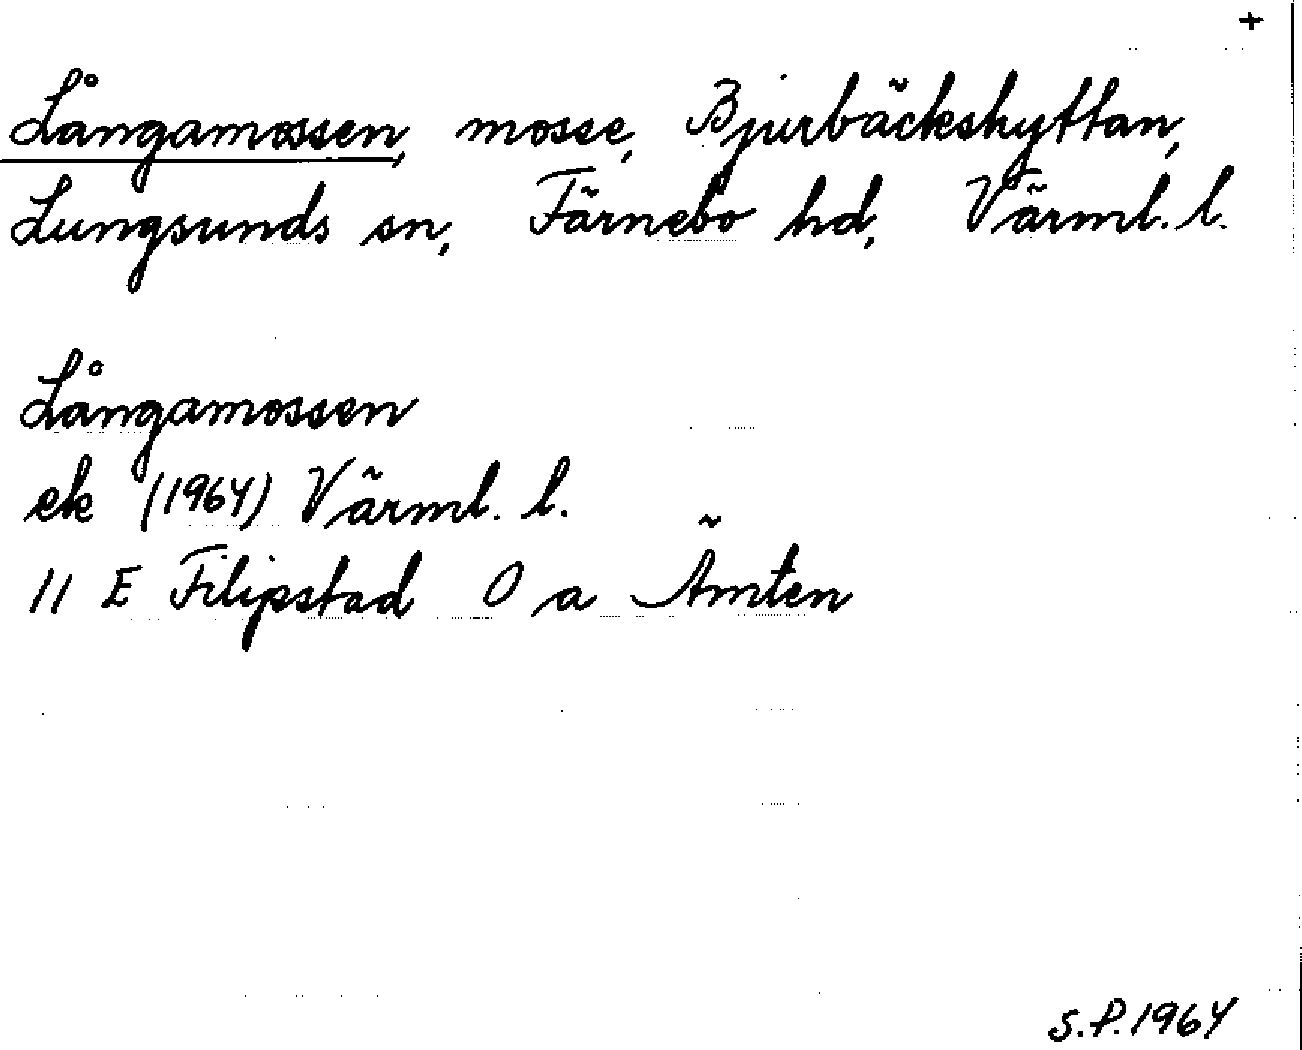 +
Långamossen, mosse, Bjurbäckshyttan,
Lungsunds sn, Färnebo hd, Värml. l.
Långamossen
ek (1964) Värml. l.
11 E Filipstad 0 a Ämten
S.P. 1964